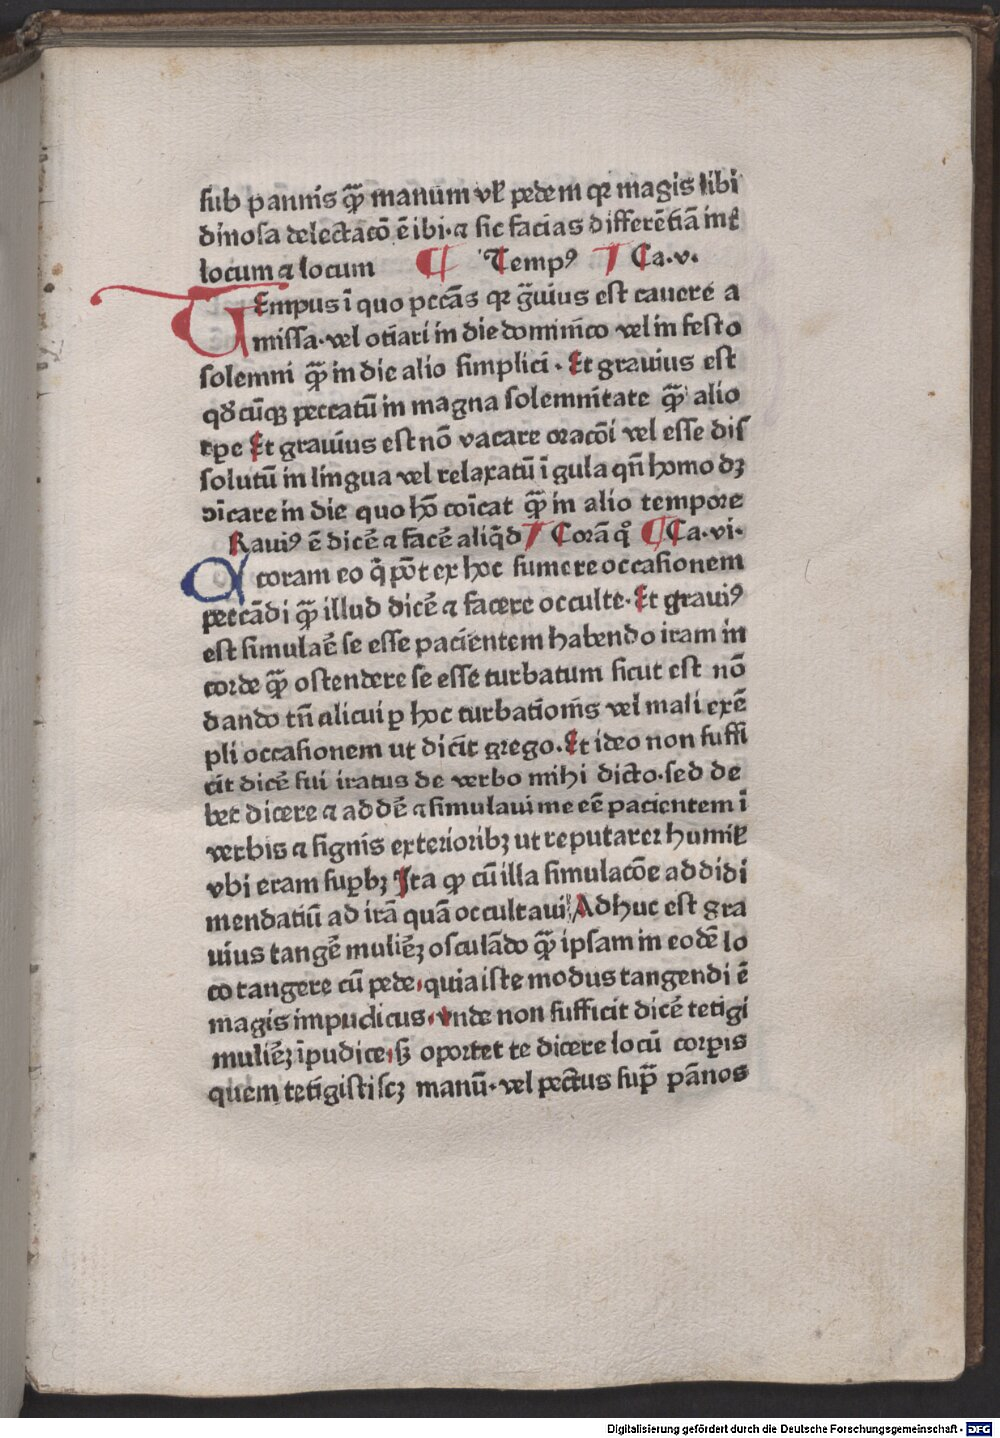 sub pannis q̄ꝫ manum vl pedem qꝛ magis libi
dinosa delectacō ē ibi·⁊ sic facias differētiā int̄
locum ⁊ locum ¶ Tempꝰ ¶ Ca·v·
TEmpus ī quo peccās qꝛ g̈uius est cauere a
missa·vel otiari in die dominico vel in festo
solemni q̄ꝫ in die alio simplici · Et grauius est
qd̛cūqꝫ peccatū in magna solemnitate q̄ꝫ alio
tꝑe Et grauius est nō vacare oracōi vel esse dis
solutū in lingua vel relaxatū ī gula qn̄ homo dꝫ
vīcare in die quo hō cōicat q̄ꝫ in alio tempore
Rauiꝰ ē dicē ⁊ facē aliq̄d ¶ Corā qͦ ¶ Ca·vi·
G coram eo q̇ pōt ex hoc sumere occasionem
peccādi q̄ꝫ illud dicē ⁊ facere occulte· Et grauiꝰ
est simulaē se esse pacientem habendo iram in
corde q̄ꝫ ostendere se esse turbatum sicut est nō
dando tn̄ alicui ꝑ hoc turbationis vel mali exē
pli occasionem ut dicit grego. Et ideo non suffi
cit dicē fui iratus de verbo mihi dicto·sed de
bet dicere ⁊ addē ⁊ simulaui me eē pacientem ī
verbis ⁊ signis exterioribꝫ ut reputarer humil̄
vbi eram suꝑbꝫ Ita ꝙ cū illa simulacōe addidi
mendatiū ad irā quā occultaui Adhuc est gra
uius tangē muliēꝫ osculādo q̄ꝫ ipsam in eodē lo
co tangere cū pede·quia iste modus tangendi ē
magis impudicus·vnde non sufficit dicē tetigi
muliēꝫ īpudice·sꝫ oportet te dicere locū corꝑis
quem tetigisti scꝫ manū·vel pectus supͣ pānos